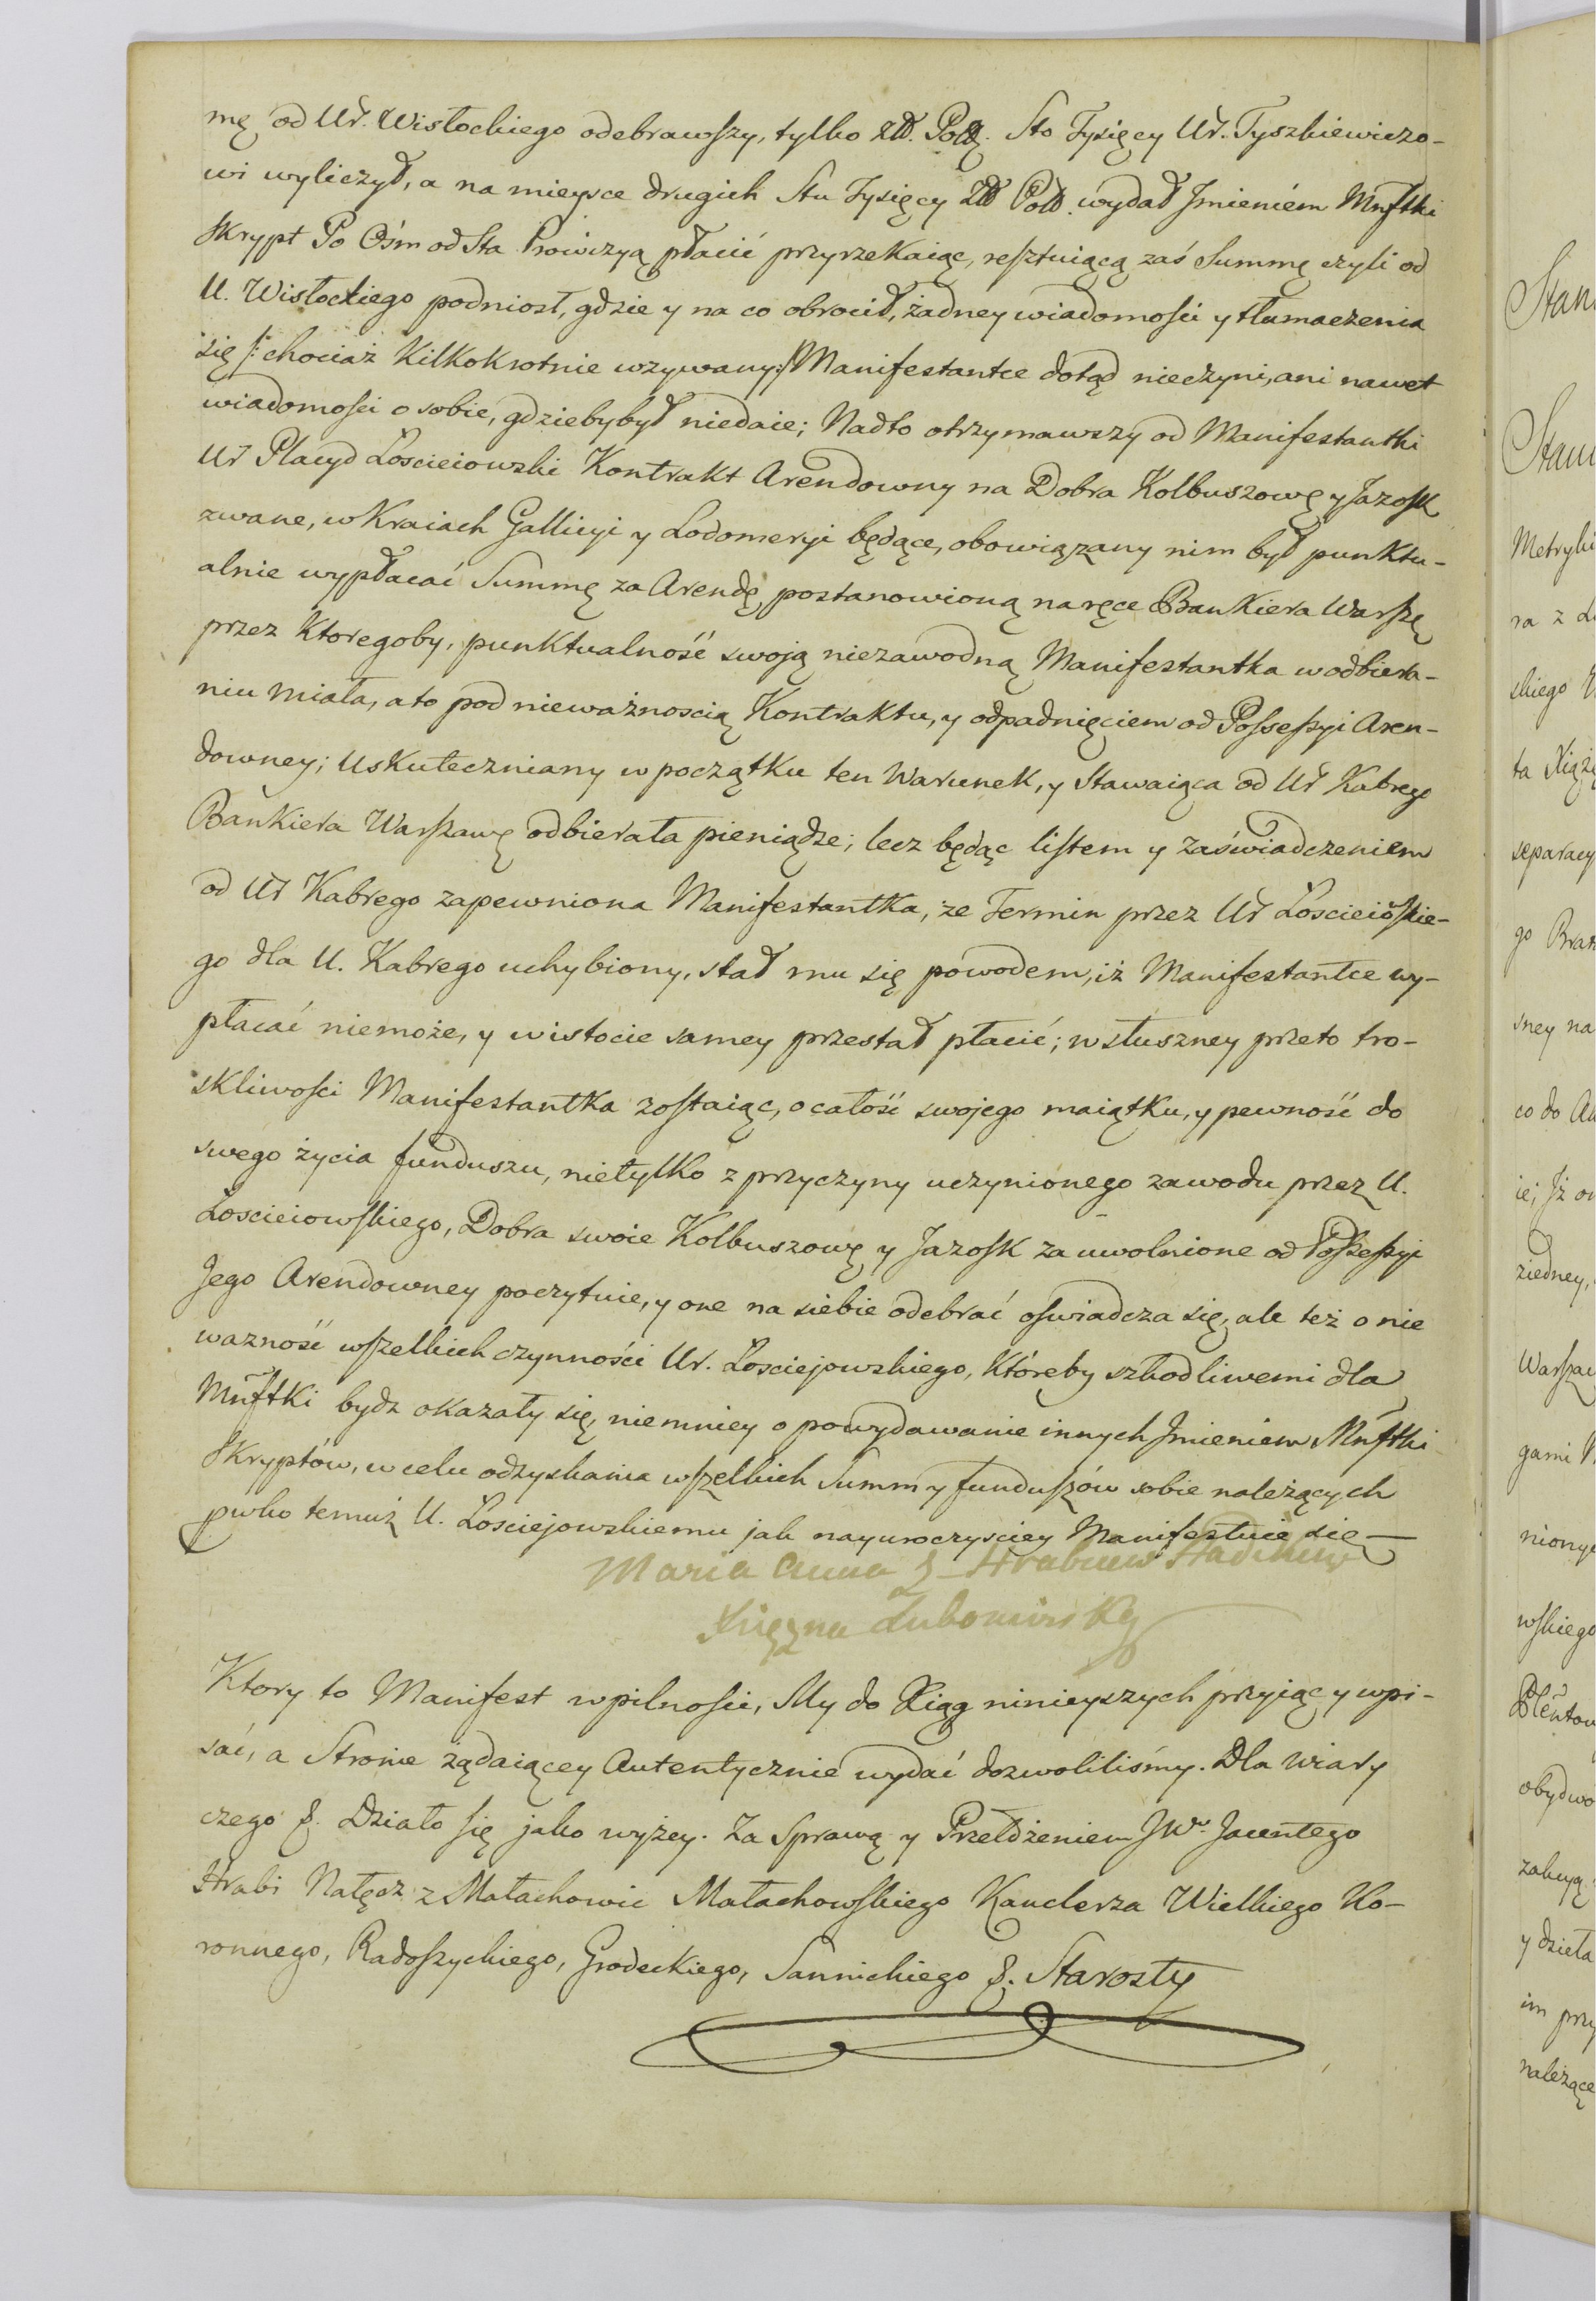 mę od Ur. Wisłockiego odebrawszy, tylko Złł. Poll. Sto Tysięcy Ur. Tyszkiewiczo-
wi wyliczył, a na mieysce drugich Stu Tysięcy Złł Poll. wydał Jmieniem Mnftki
Skrypt Po Ośm od Sta Prowizyą płacić przyrzekaiąc, resztuiącą zaś Summę czyli od
U. Wisłockiego podniosł, gdzie y na co obrocił, żadney wiadomości y tłumaczenia
się /: chociaż kilkokrotnie wzywany :/ Manifestantce dotąd nieczyni, ani nawet
wiadomości o sobie, gdzieby był niedaie; Nadto otrzymawszy od Manifestantki
Ur Placyd Łościeiowski Kontrakt Arendowny na Dobra Kolbuszowę y Jazosk
zwane, w Kraiach Gallicyi y Lodomeryi będące, obowiązany nim był punktu-
alnie wypłacać Summę za Arendę postanowioną na ręce Bankiera Warszę
przez Ktoregoby, punktualność swoją niezawodną Manifestantka w odbiera-
niu miała, a to pod nieważnoscią Kontraktu, y odpadnięciem od Possessyi Aren-
downey; uskuteczniany w początku ten Warunek, y Stawaiąca od Ur Kabrego
Bankiera Warszawę odbierała pieniądze; lecz będąc listem y zaświadczeniem
od Ur Kabrego zapewniona Manifestantka, że Termin przez Ur Łościeioskie-
go dla U. Kabrego uchybiony, stał mu się powodem, iż Manifestantce wy-
płacać niemoże, y w istocie samey przestał płacić; w słuszney przeto tro-
skliwości Manifestantka zostaiąc, o całość swojego maiątku, y pewność do
swego życia funduszu, nietylko z przyczyny uczynionego zawodu przez U.
Łoscieiowskiego, Dobra swoie Kolbuszowę y Jazosk za uwolnione od Possessyi
Jego Arendowney poczytuie, y one na siebie odebrać oswiadcza się, ale też o nie
ważność wszelkich czynności Ur. Łosciejowskiego, Któreby szkodliwemi dla
Mnftki bydz okazały się, niemniey o powydawanie innych Jmieniem Mnftki
Skryptów, w celu odzyskania wszelkich Summ y funduszów sobie należących
pwko temuż U. Łosciejowskiemu jak nayuroczyściey Manifestuie się
Maria Anna z Hrabiuw Hadikuw
Xiężna Lubomirska
Ktory to Manifest w pilności, My do Xiąg ninieyszych przyiąc y wpi-
sać, a Stronie żądaiącey Autentycznie wydać dozwoliliśmy. Dla wiary
czego &. Działo się jako wyżey. Za Sprawą y Przełożeniem JW. Jacentego
Hrabi Nałęcz z Małachowic Małachowskiego Kanclerza Wielkiego Ko-
ronnego, Radoszyckiego, Grodeckiego, Sannickiego &. Starosty